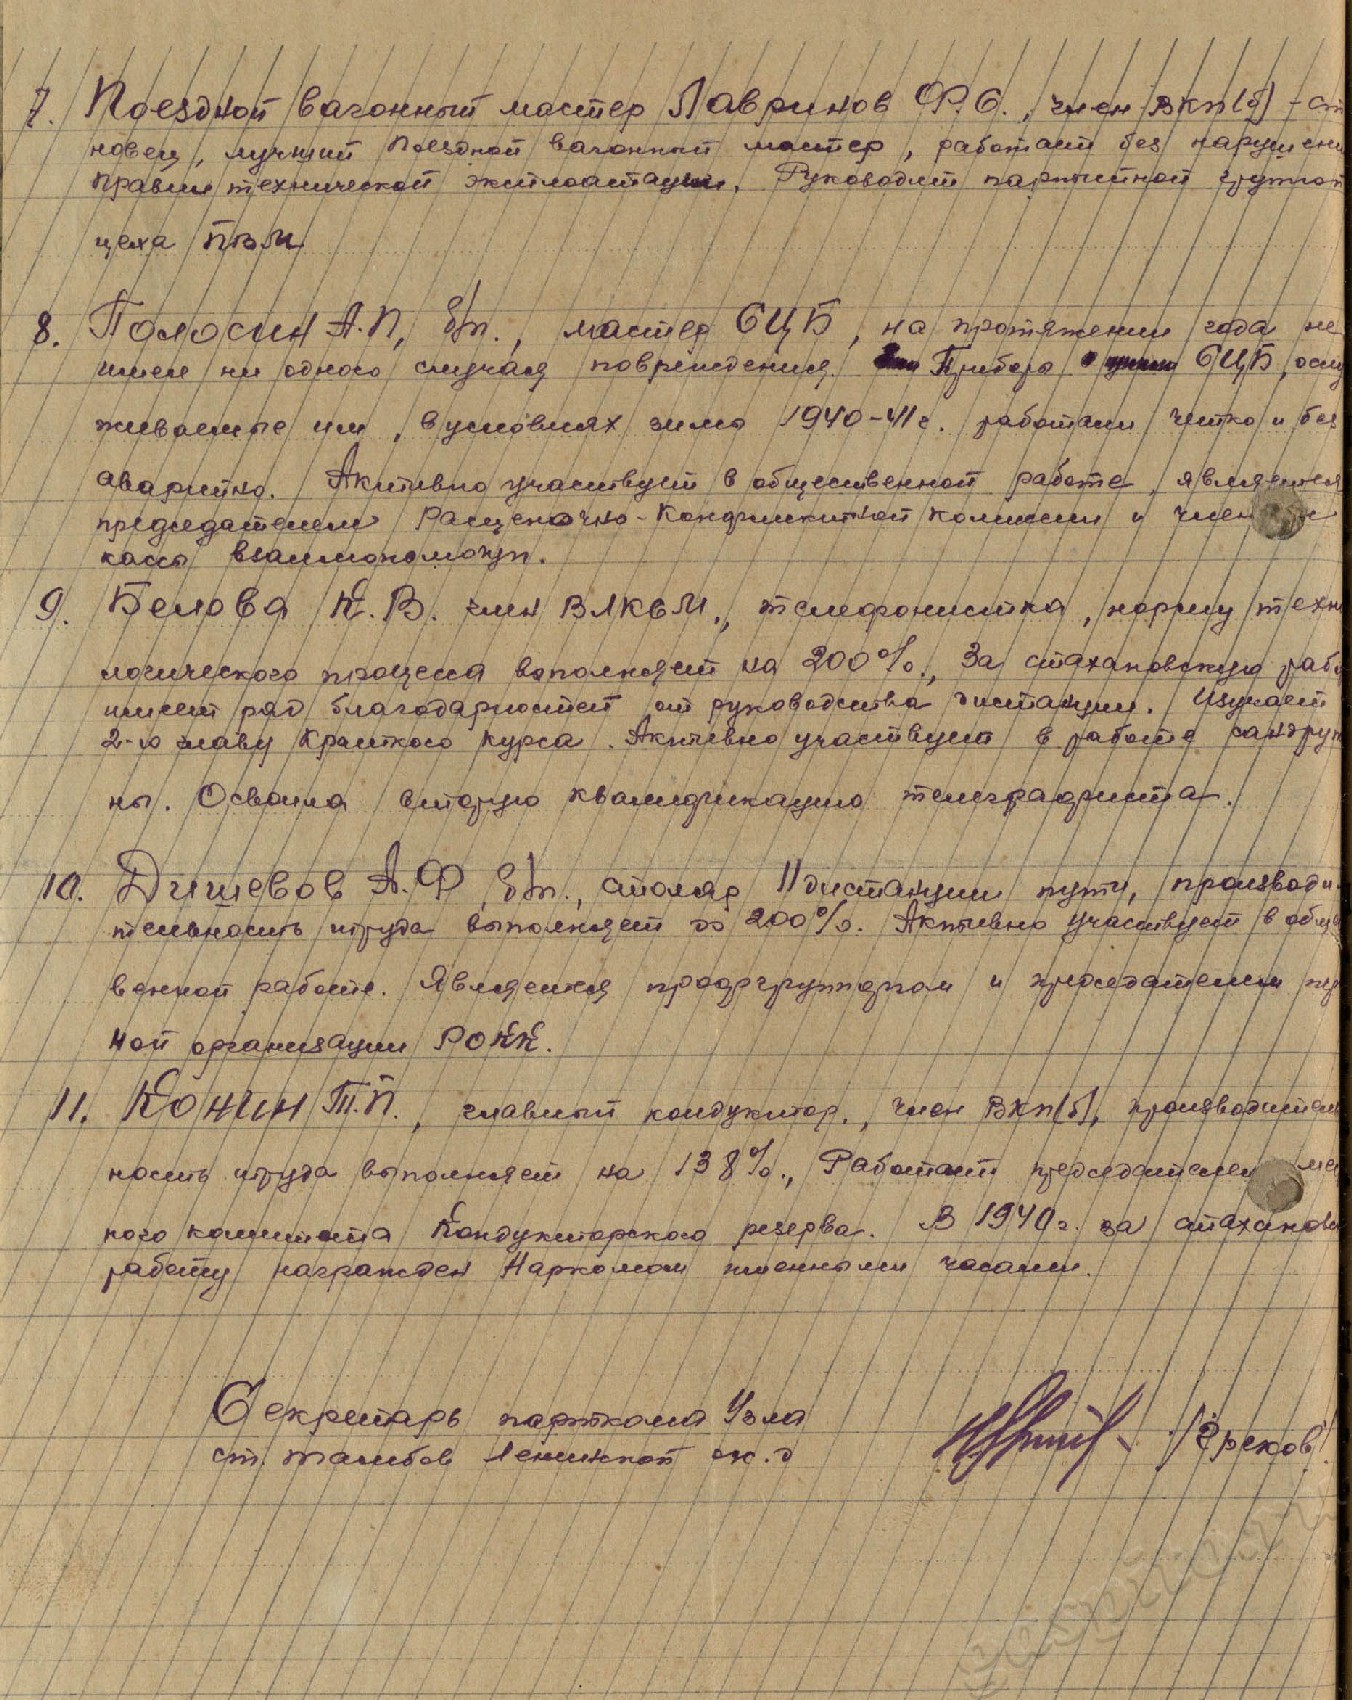 7. Поездной вагонный мастер Лавринов Ф.С., член ВКП(б) - ст
новец, лучший поездной вагонный мастер, работает без нарушени
правил технической эксплоатации. Руководит партийной группой
цеха ПВМ
8. Полосин А.П, б/п., мастер СЦБ, на протяжении года не
имел ни одного случая повреждения. Приборы СЦБ, обслу
живаемые им, в условиях зимы 1940-41г. работали четко и без
аварийно. Активно участвует в общественной работе, является
председателем Расценочно-Конфликтной комиссии и член
кассы взаимопомощи.
9. Белова К.В. член ВЛКСМ., телефонистка, норму техно
логического процесса выполняет на 200%., За стахановскую рабо
имеет ряд благодарностей от руководства дистанции. Изучает
2-ю главу Краткого курса. Активно участвует в работе сандруж
ны. Освоила вторую квалификацию телеграфиста.
10. Дишевов А.Ф, б/п., столяр 11 дистанции пути, производи-
тельность труда выполняет до 200%. Активно участвует в общес
венной работе. Является профгруппоргом и председателем пер
ной организации РОКК.
11. Конин Т.П., главный кондуктор., член ВКП(б), производитель
ность труда выполняет на 138%., Работает председателем мес
ного комитета Кондукторского резерва. В 1940г. за стаханов
работу награжден Наркомом именными часами.
Секретарь парткома Узла
ст. Тамбов Ленинской ж.д /Греков/